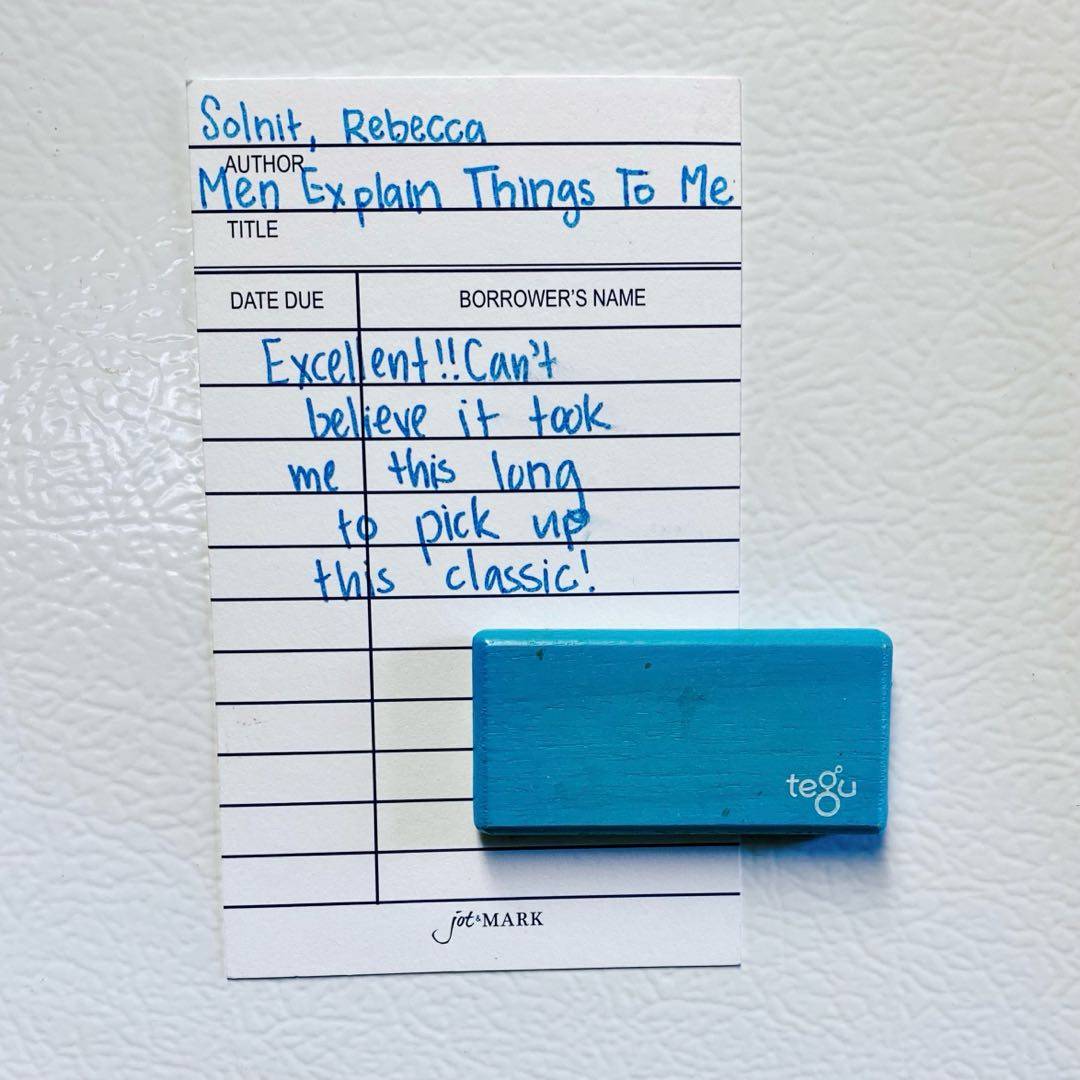 Solnit, Rebecca
AUTHOR
Men Explain Things To Me
TITLE
DATE DUE BORROWER'S NAME
Excellent!! Can't
believe it took
me this long
to pick up
this classic!
tegu
jot & MARK